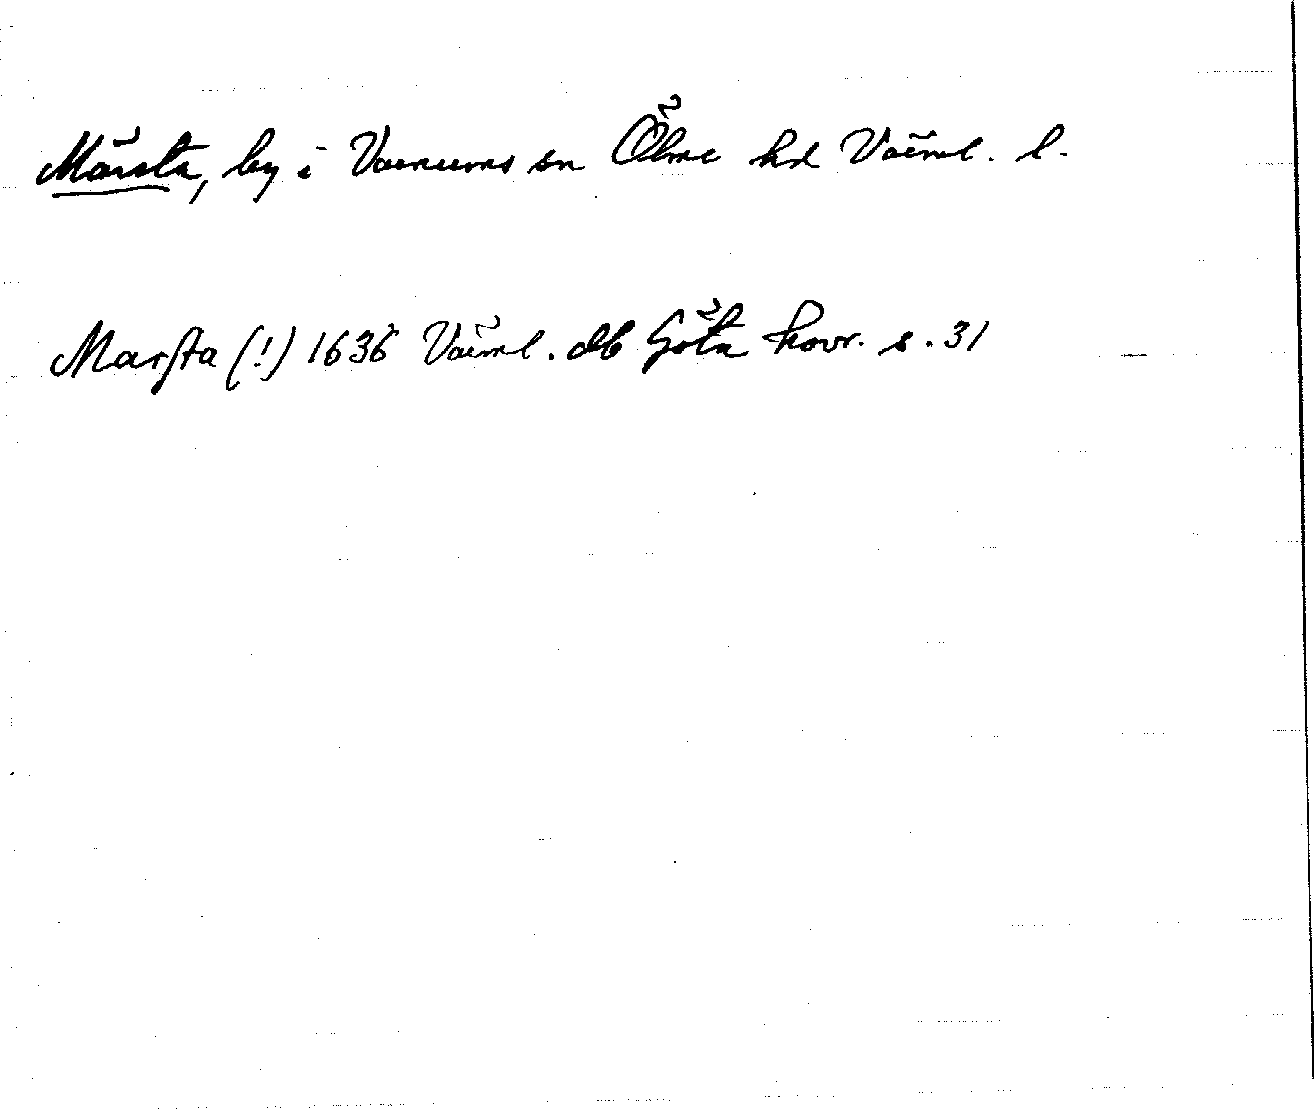 Märsta, by i Varnums sn Ölme hd Värml. l.
Marsta (!) 1636 Värml. db Göta hovr. s. 31